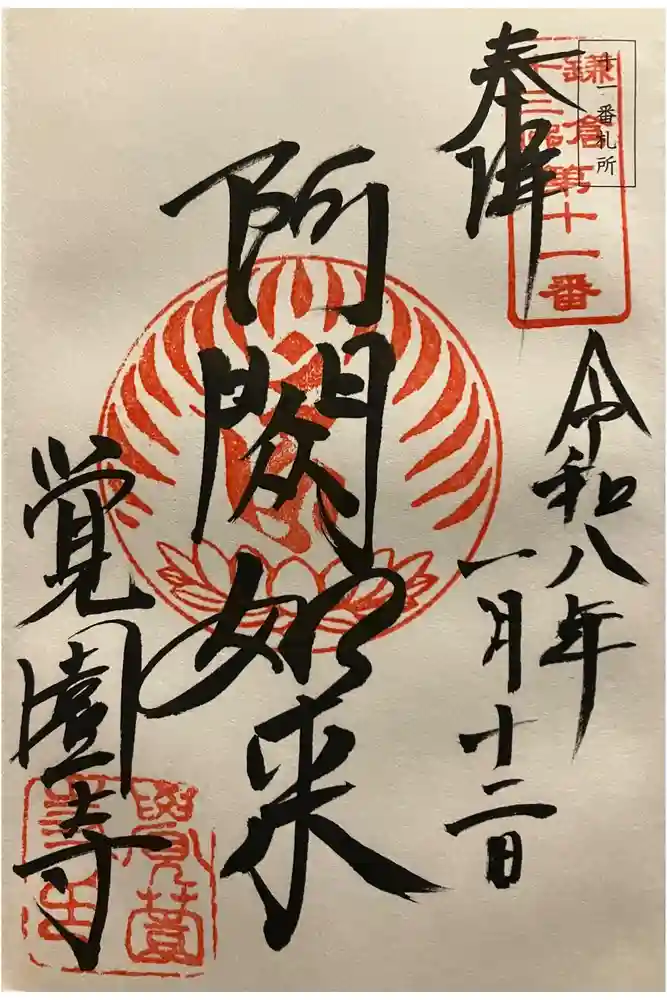 十一番札所
鎌倉
十三佛
第十一番
奉拝
令和八年
一月十二日
阿閦如来
覚園寺